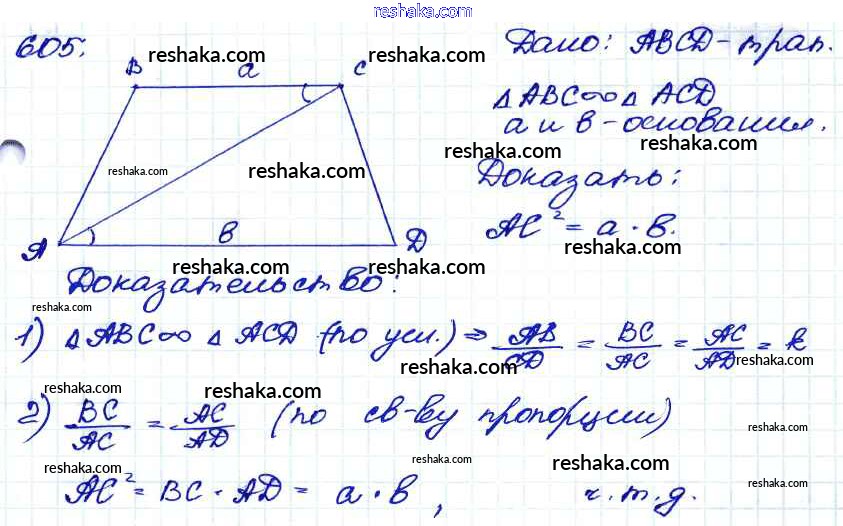 reshaka.com
605.
reshaka.com
reshaka.com
Дано: ABCD - трап.
B a C
reshaka.com
△ABC∞△ACD
a и в - основания.
reshaka.com
reshaka.com
reshaka.com
Доказать:
AC² = a · в.
reshaka.com
A в D
reshaka.com
reshaka.com
Доказательство:
reshaka.com
1) △ABC∞△ACD (по усл.) ⇒ AB/CD = BC/AC = AC/AD = k
reshaka.com
reshaka.com
reshaka.com
reshaka.com
2) BC/AC = AC/AD (по св-ву пропорции)
reshaka.com
reshaka.com
reshaka.com
reshaka.com
reshaka.com
AC² = BC · AD = a · в, ч.т.д.
reshaka.com